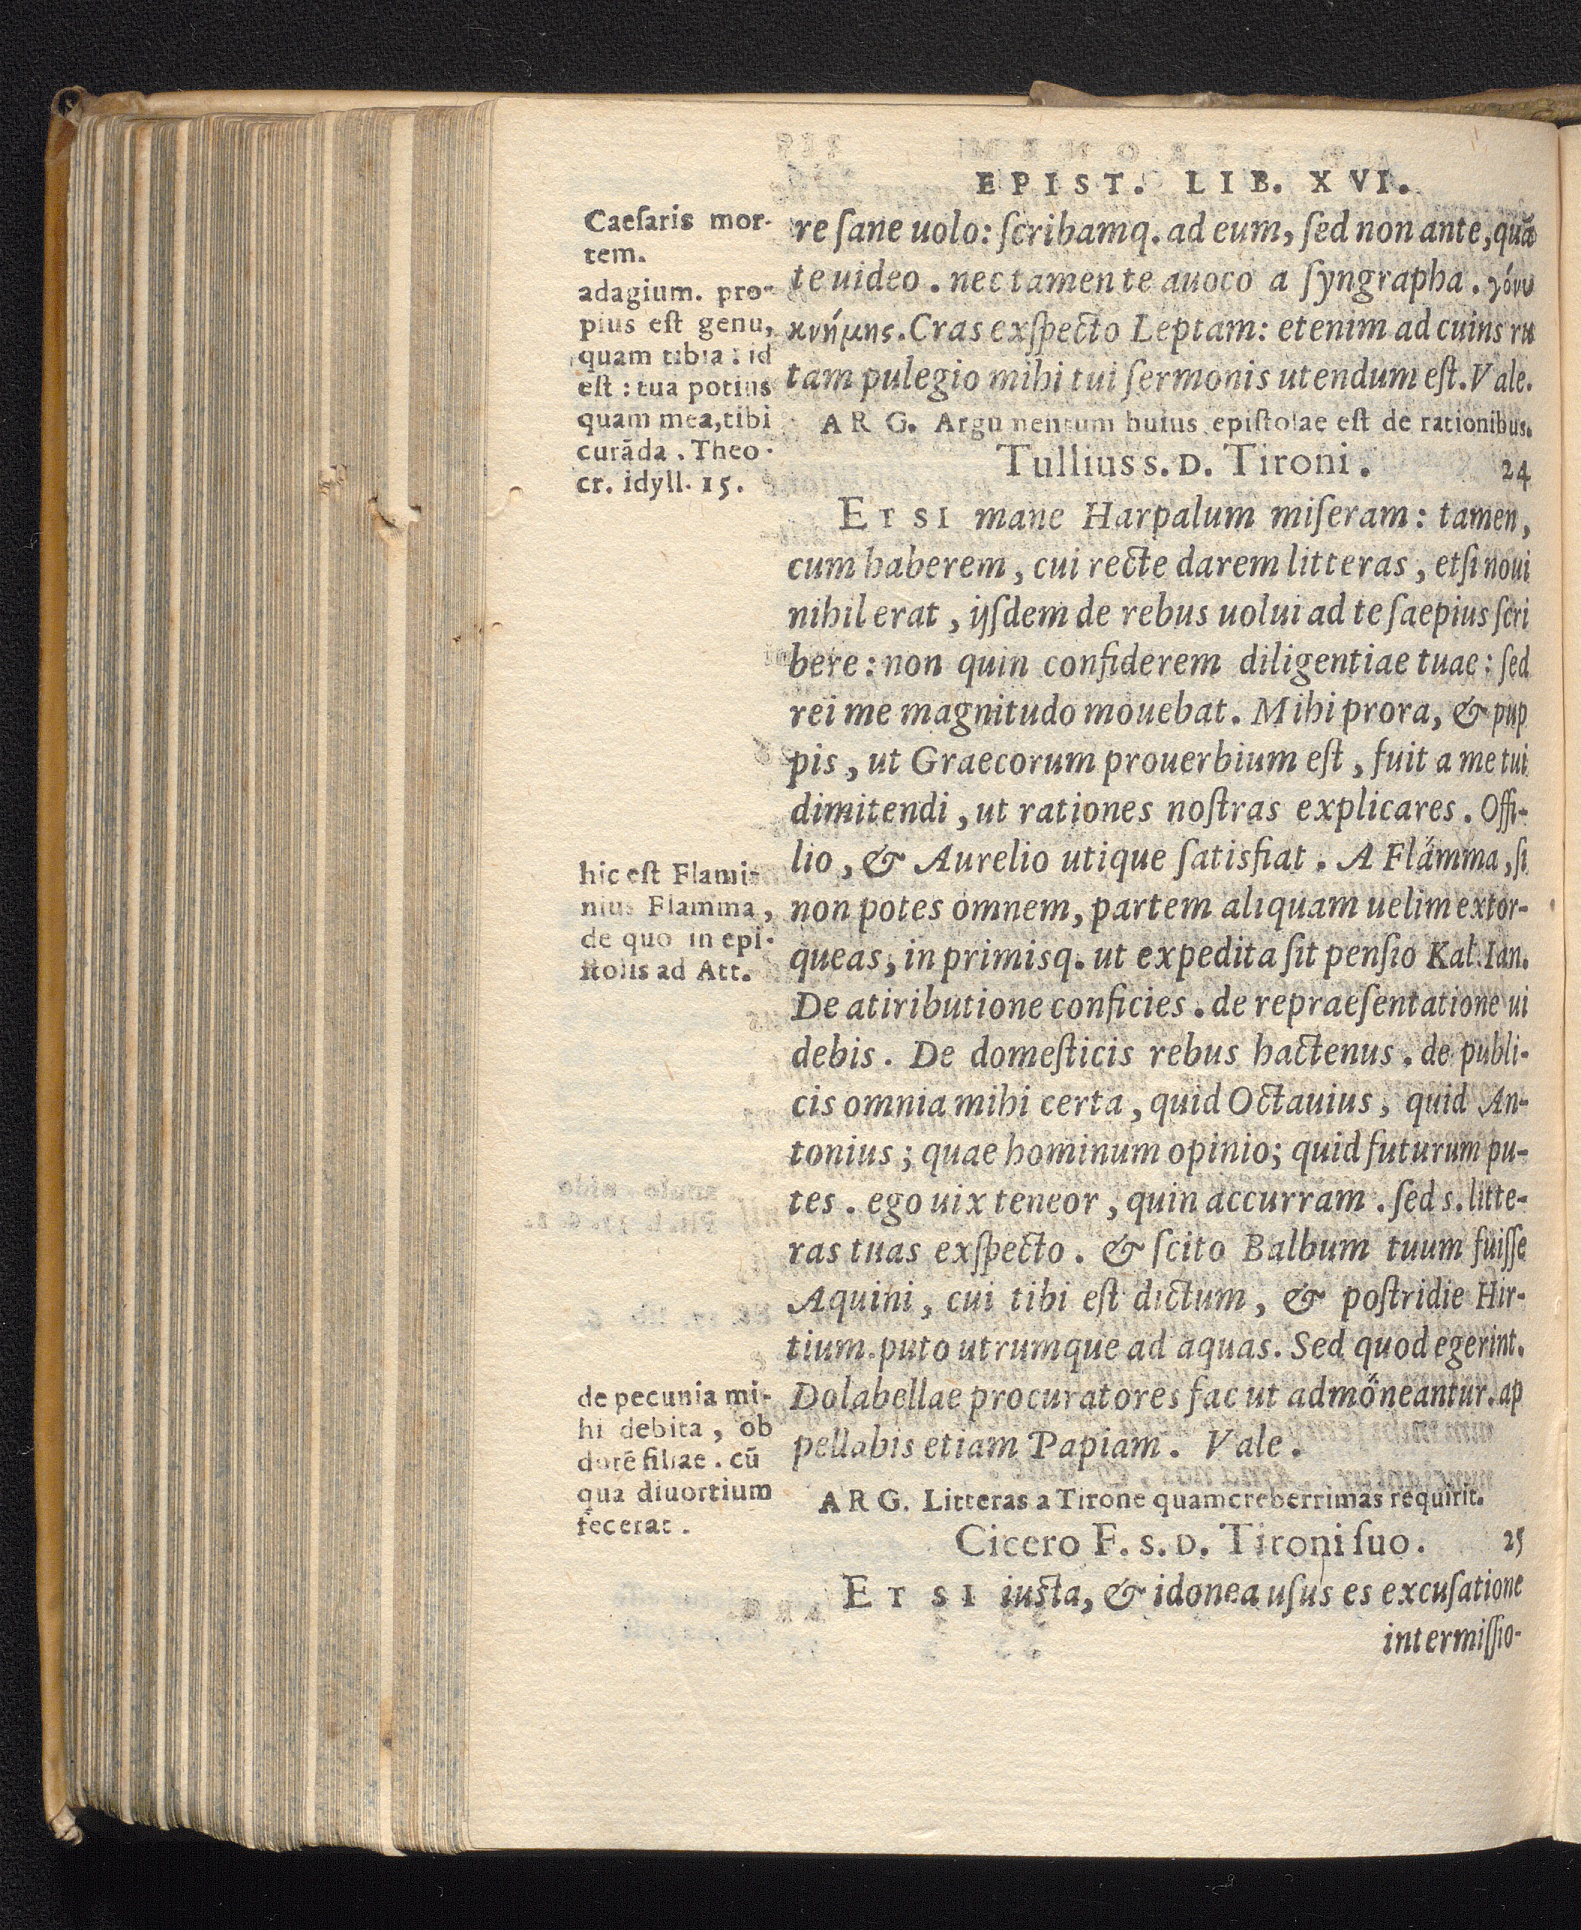 EPIST. LIB. XVI.
Caeſaris mor-
tem.
adagium. pro-
pius eſt genu,
quam tibia : id
eſt : tua potius
quam mea, tibi
curāda . Theo-
cr. idyll. 15.
re ſane uolo: ſcribamq. ad eum, ſed non ante, quā
te uideo . nec tamen te auoco a ſyngrapha . γόνυ
κνήμης. Cras exſpecto Leptam: etenim ad cuius ru
tam pulegio mihi tui ſermonis utendum eſt. Vale.
ARG. Argumentum huius epiſtolae eſt de rationibus.
Tullius s. D. Tironi . 24
ETSI mane Harpalum miſeram: tamen,
cum haberem, cui recte darem litteras, etſi noui
nihil erat, ijſdem de rebus uolui ad te ſaepius ſcri
bere: non quin confiderem diligentiae tuae: ſed
rei me magnitudo mouebat. Mihi prora, & pup
pis, ut Graecorum prouerbium eſt, fuit a me tui
dimitendi, ut rationes noſtras explicares. Offi-
lio, & Aurelio utique ſatisfiat. A Flamma, ſi
non potes omnem, partem aliquam uelim extor-
queas, in primisq. ut expedita ſit penſio Kal. Ian.
De atiributione conficies. de repraeſentatione ui
debis. De domeſticis rebus hactenus. de publi-
cis omnia mihi certa, quid Octauius, quid An-
tonius; quae hominum opinio; quid futurum pu-
tes. ego uix teneor, quin accurram. ſed s. litte-
ras tuas exſpecto. & ſcito Balbum tuum fuiſſe
Aquini, cui tibi eſt dictum, & poſtridie Hir-
tium. puto utrumque ad aquas. Sed quod egerint.
Dolabellae procuratores fac ut admoneantur. ap
pellabis etiam Papiam. Vale.
hic eſt Flami-
nius Flamma,
de quo in epi-
ſtolis ad Att.
de pecunia mi-
hi debita, ob
dotē filiae. cū
qua diuortium
fecerat.
ARG. Litteras a Tirone quamcreberrimas requirit.
Cicero F. s. D. Tironi ſuo. 25
ETSI iuſta, & idonea uſus es excuſatione
intermiſſio-